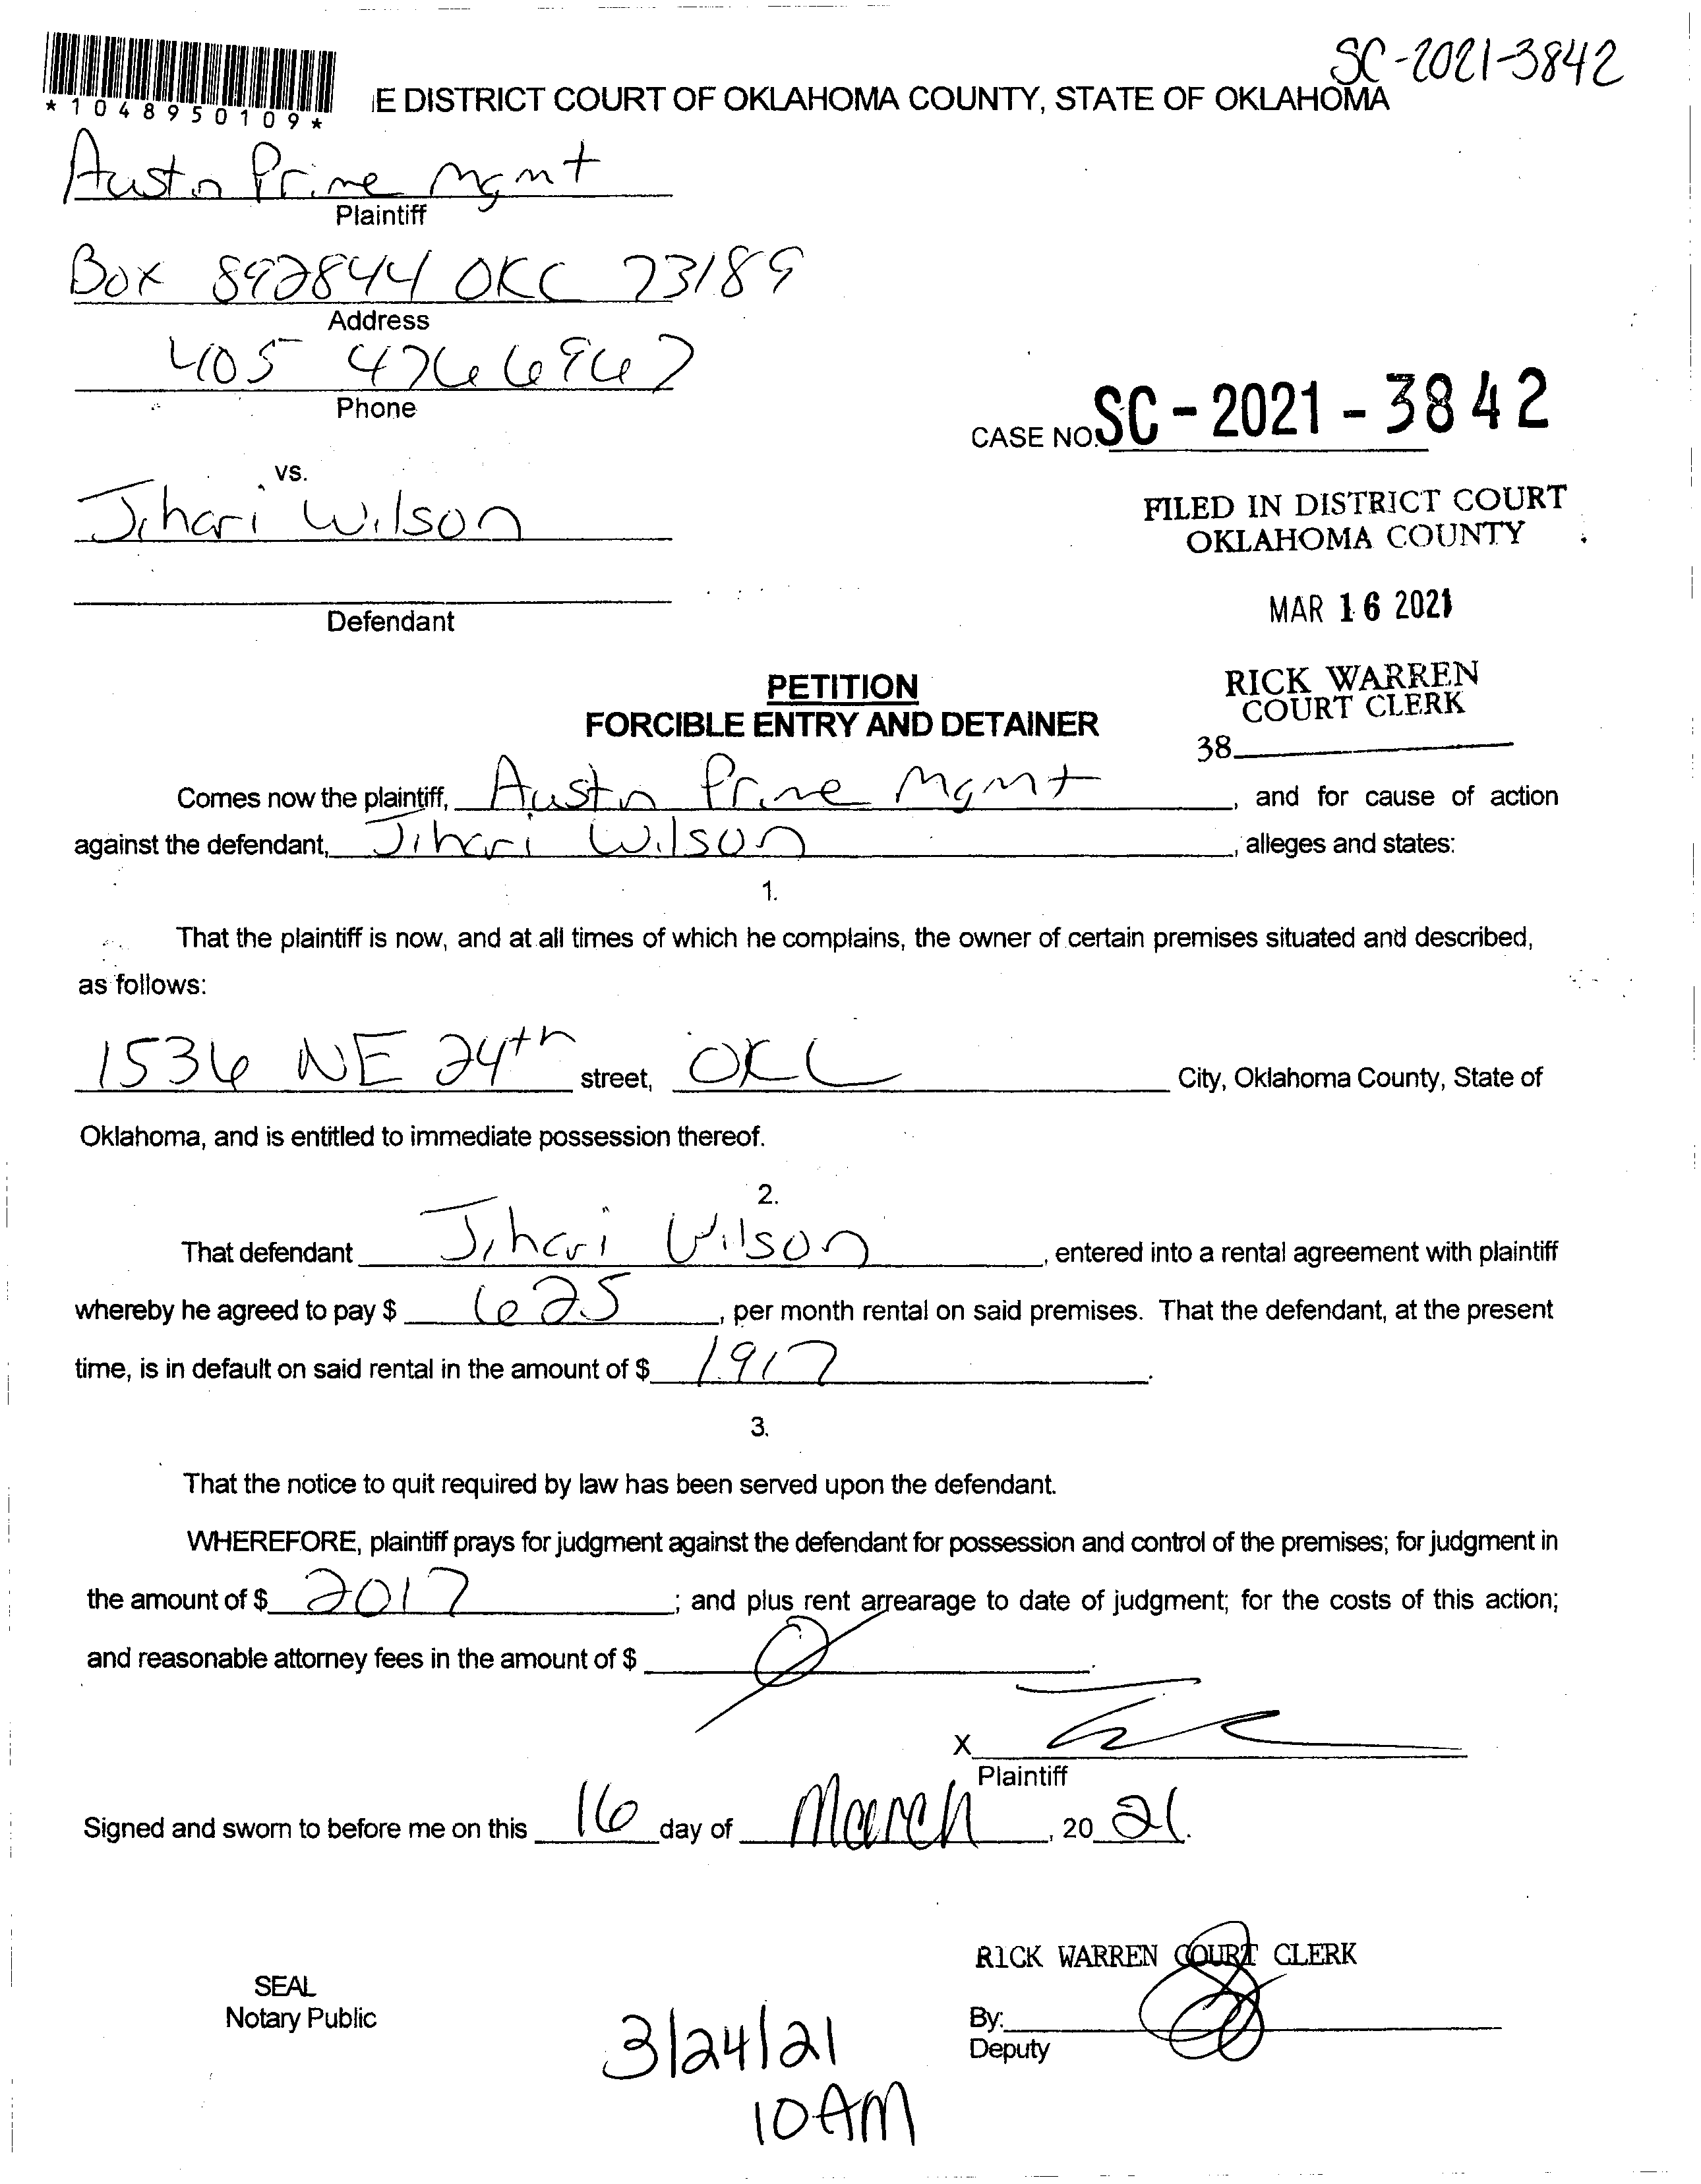 SC-2021-3842
*1048950109*
E DISTRICT COURT OF OKLAHOMA COUNTY, STATE OF OKLAHOMA
Austin Prime Mgmt
Plaintiff
Box 892844 OKC 73189
Address
405 476 6967
Phone
CASE NO. SC-2021-3842
vs.
Jihari Wilson
FILED IN DISTRICT COURT
OKLAHOMA COUNTY
Defendant
MAR 16 2021
RICK WARREN
COURT CLERK
38
PETITION
FORCIBLE ENTRY AND DETAINER
Comes now the plaintiff, Austin Prime Mgmt, and for cause of action
against the defendant, Jihari Wilson, alleges and states:
1.
That the plaintiff is now, and at all times of which he complains, the owner of certain premises situated and described,
as follows:
1536 NE 24th street, OKC City, Oklahoma County, State of
Oklahoma, and is entitled to immediate possession thereof.
2.
That defendant Jihari Wilson, entered into a rental agreement with plaintiff
whereby he agreed to pay $ 625, per month rental on said premises. That the defendant, at the present
time, is in default on said rental in the amount of $ 1917.
3.
That the notice to quit required by law has been served upon the defendant.
WHEREFORE, plaintiff prays for judgment against the defendant for possession and control of the premises; for judgment in
the amount of $ 2017; and plus rent arrearage to date of judgment; for the costs of this action;
and reasonable attorney fees in the amount of $ 0.
X
Plaintiff
Signed and sworn to before me on this 16 day of March, 2021.
RICK WARREN COURT CLERK
SEAL
Notary Public
By:
Deputy
3/24/21
10 AM